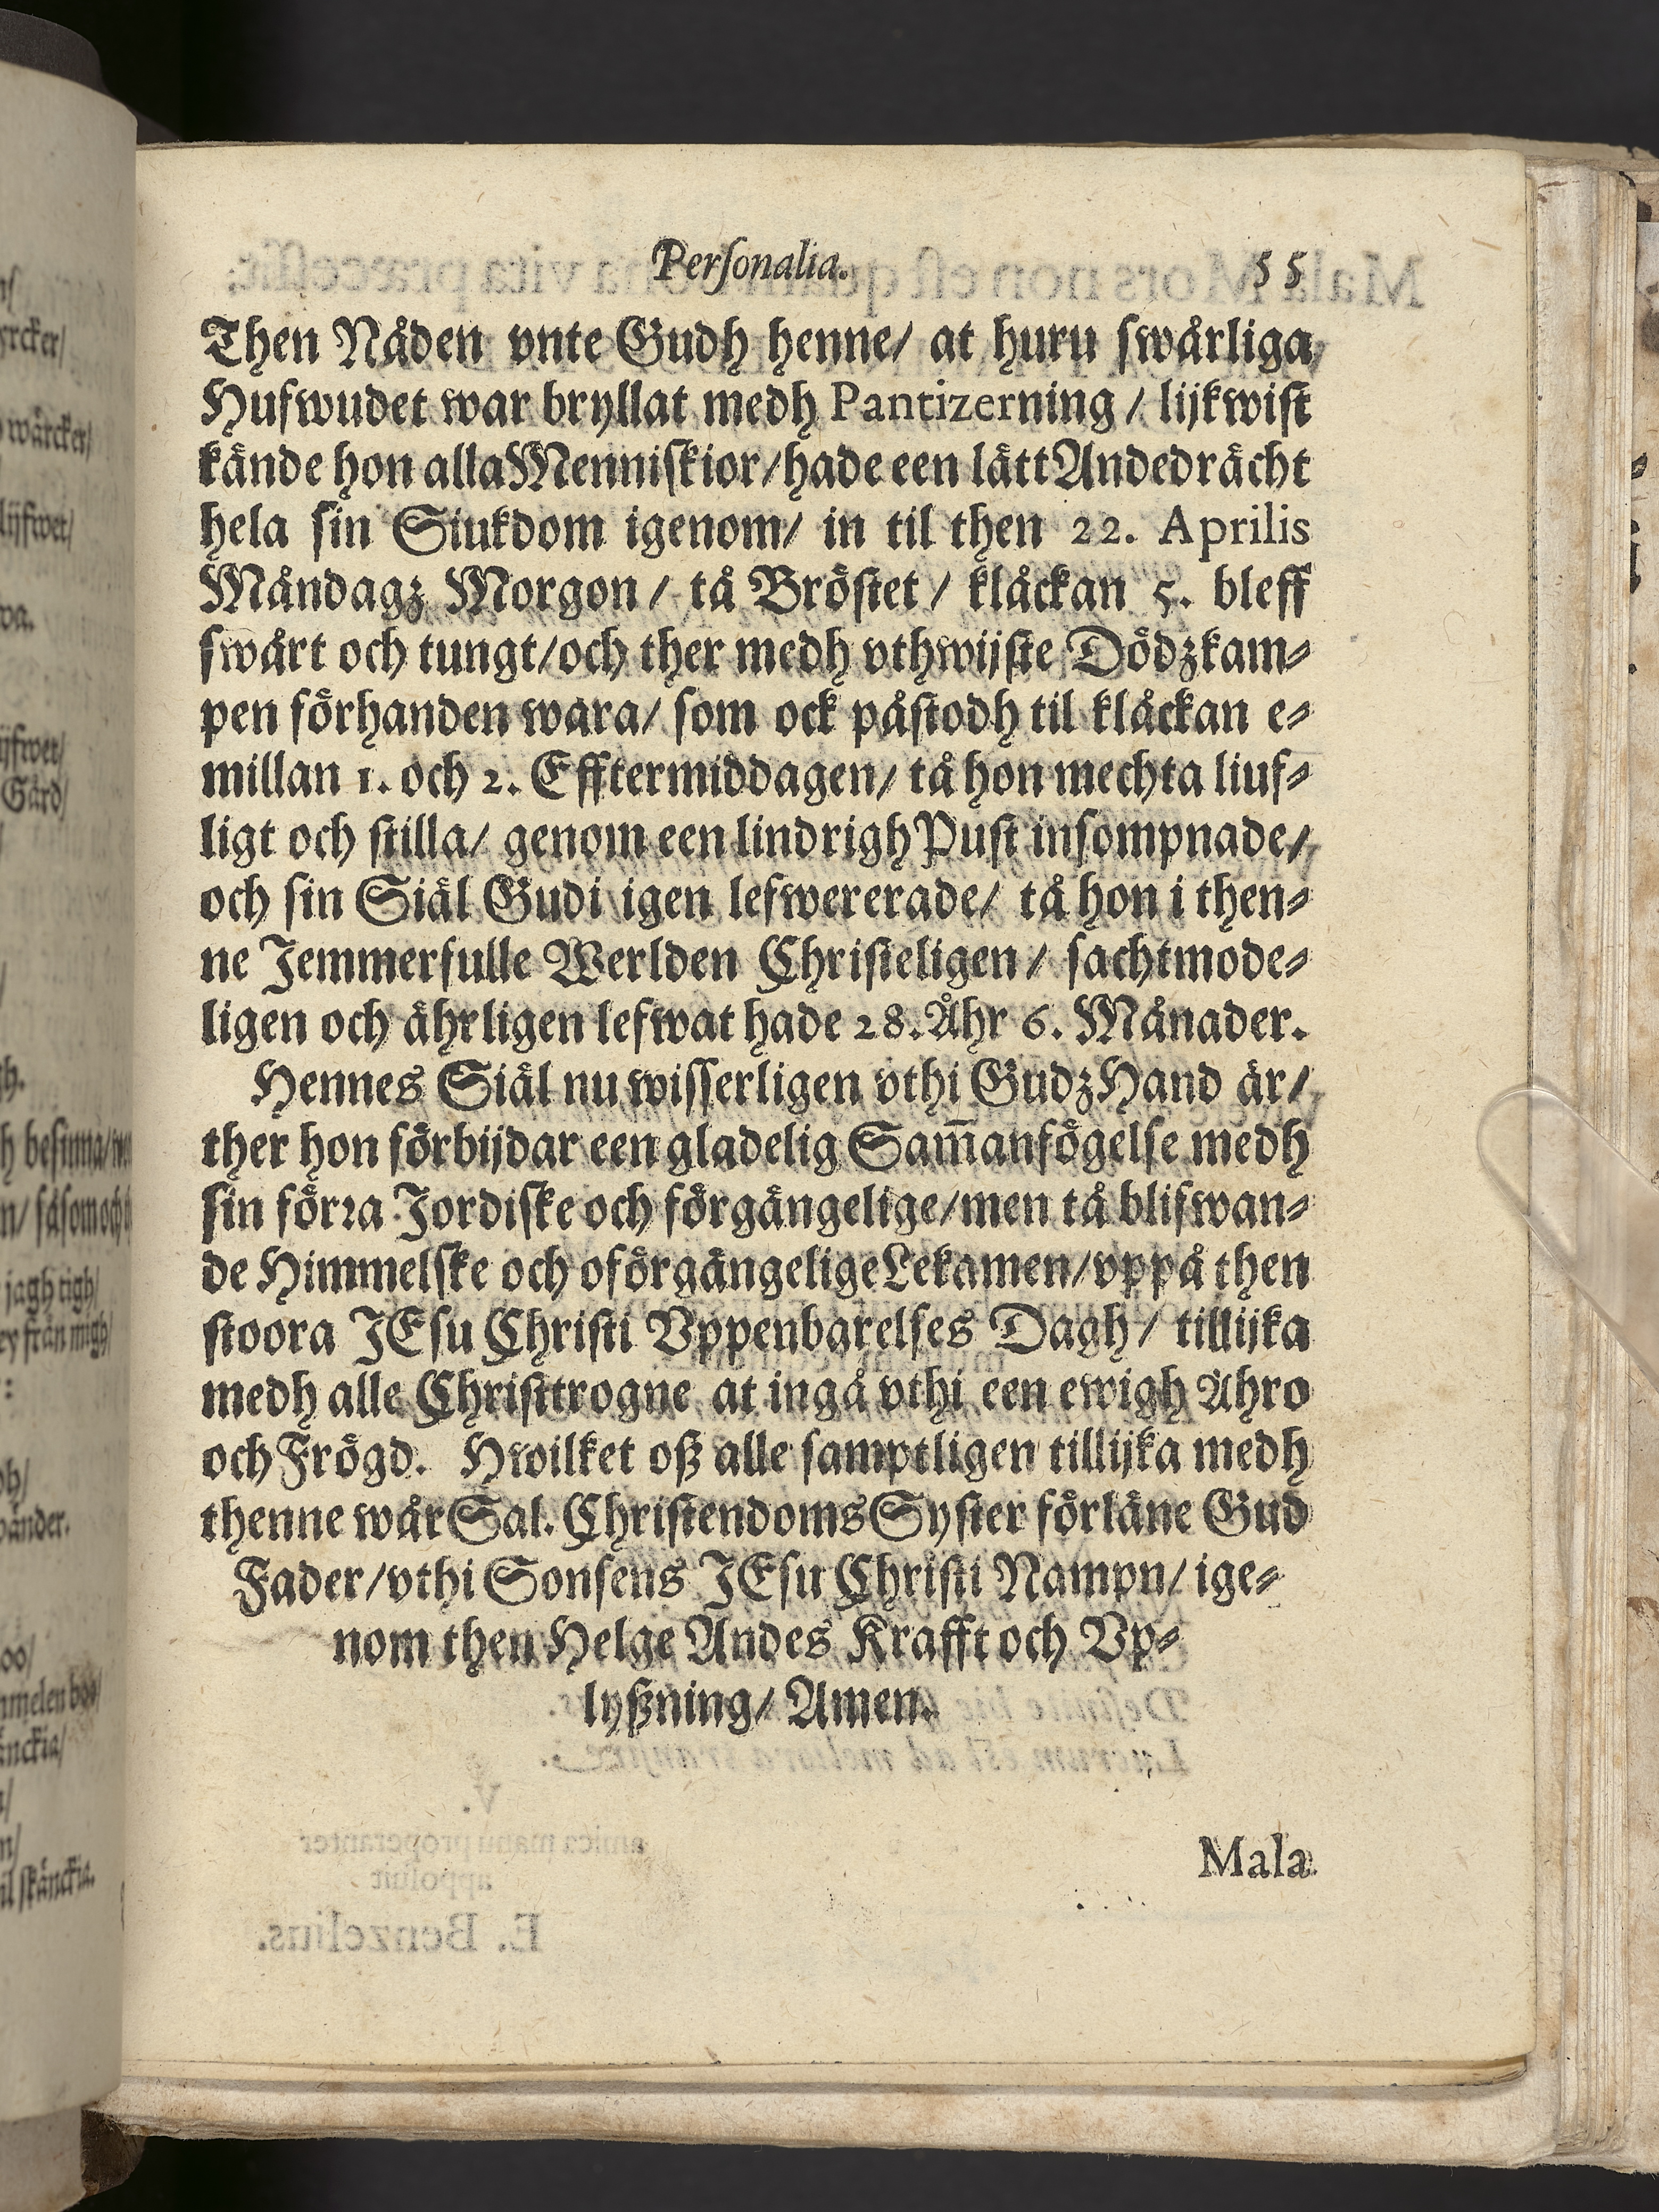 Personalia. 55
Then Nåden vnte Gudh henne/ at huru swårliga
Hufwudet war bryllat medh Pantizerning / lijkwist
kände hon alla Menniskior/ hade een lätt Andedrächt
hela sin Siukdom igenom/ in til then 22. Aprilis
Måndagz Morgon / tå Bröstet / klåckan 5. bleff
swårt och tungt/ och ther medh vthwijste Dödzkam-
pen förhanden wara/ som ock påstodh til klåckan e-
millan 1. och 2. Efftermiddagen/ tå hon mechta liuf-
ligt och stilla/ genom een lindrigh Pust insompnade/
och sin Siäl Gudi igen lefwererade/ tå hon i then-
ne Jemmerfulle Werlden Christeligen / sachtmode-
ligen och ährligen lefwat hade 28. Åhr 6. Månader.
Hennes Siäl nu wisserligen vthi Gudz Hand är/
ther hon förbijdar een gladelig Sam̅anfögelse medh
sin förra Jordiske och förgängelige/ men tå blifwan-
de Himmelske och oförgängelige Lekamen/ vppå then
stoora JEsu Christi Vppenbarelses Dagh / tillijka
medh alle Christtrogne at ingå vthi een ewigh Ähro
och Frögd. Hwilket oß alle samptligen tillijka medh
thenne wår Sal. Christendoms Syster förläne Gud
Fader/ vthi Sonsens JEsu Christi Nampn/ ige-
nom then Helge Andes Krafft och Vp-
lyßning/ Amen.
Mala